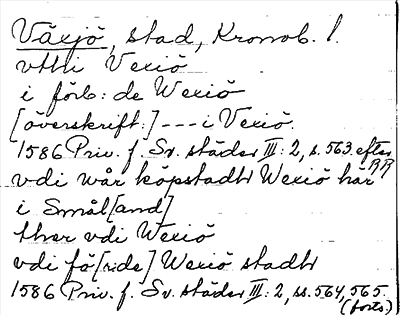 Växjö, stad, Kronob. l.
vtti Vexiö
i förb: de Wexiö
[överskrift:] --- i Vexiö.
1586 Priv. f. Sv. städer III: 2, s. 563. efter RR
vdi wår köpstadh Wexiö här
i Smål[and]
ther vdi Wexiö
vdi fö[ride] Wexiö stadh
1586 Priv. f. Sv. städer III: 2, ss. 564, 565.
(forts.)